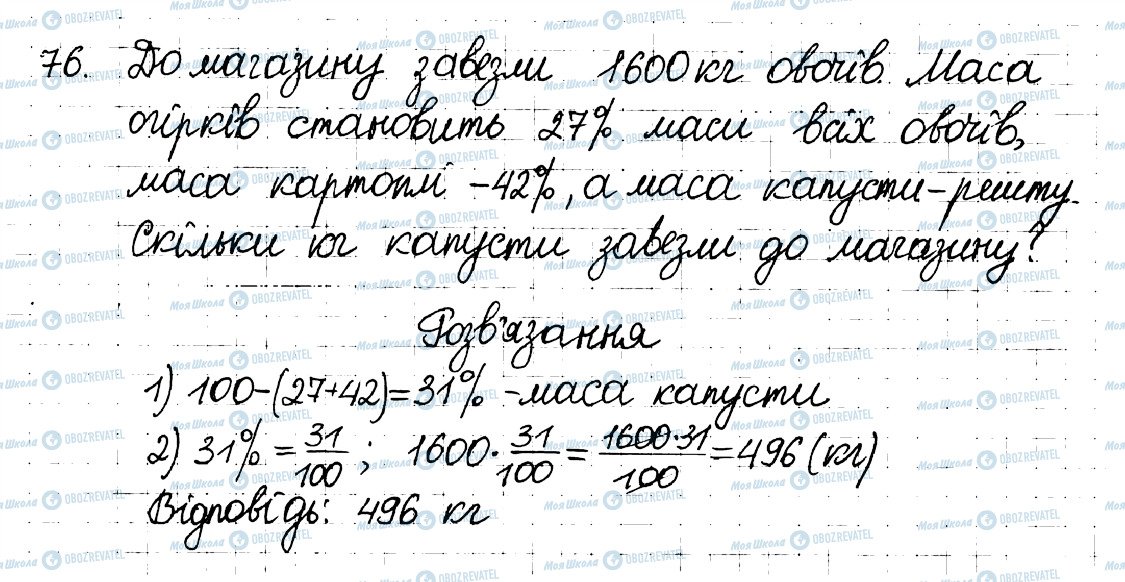 76. До магазину завезли 1600 кг овочів. Маса
огірків становить 27% маси всіх овочів,
маса картоплі - 42%, а маса капусти - решту.
Скільки кг капусти завезли до магазину?
Розв'язання
1) 100-(27+42)=31% - маса капусти
2) 31% = 31/100 ; 1600 · 31/100 = 1600·31/100 = 496 (кг)
Відповідь: 496 кг
Моя Школа OBOZREVATEL